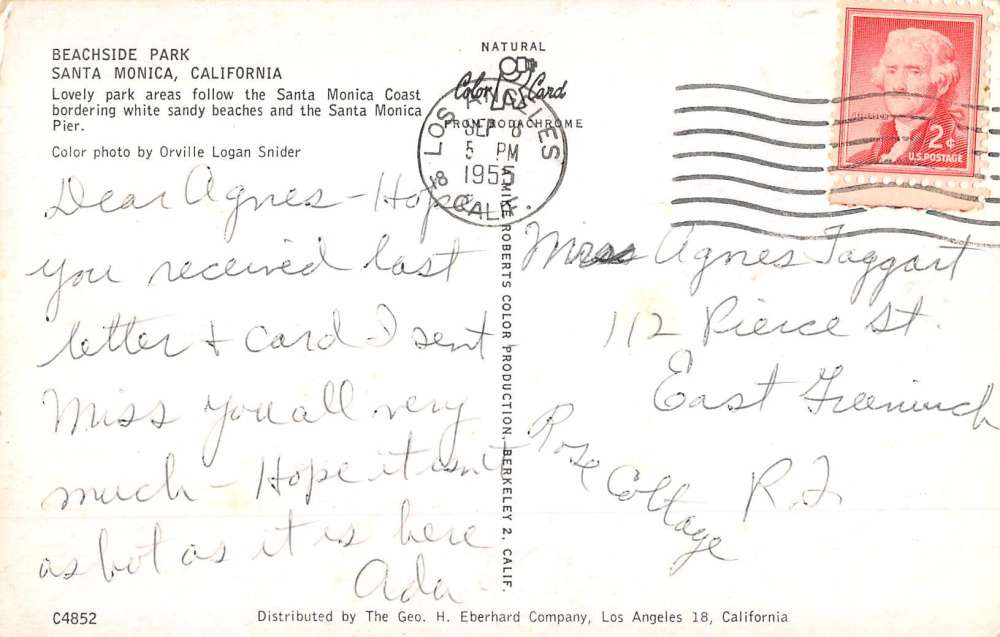 BEACHSIDE PARK
SANTA MONICA, CALIFORNIA
Lovely park areas follow the Santa Monica Coast
bordering white sandy beaches and the Santa Monica
Pier.
Color photo by Orville Logan Snider
NATURAL
Color Card
FROM KODACHROME
LOS ANGELES
SEP 8
5 PM
1955
CALIF.
18
2¢
U.S. POSTAGE
Dear Agnes - Hope
you received last
letter + card I sent
Miss you all very
much - Hope it isn't
as hot as it is here
Ada
MIKE ROBERTS COLOR PRODUCTION, BERKELEY 2, CALIF.
Agnes Taggart
112 Pierce St.
East Greenwich
R.I.
Rose Cottage
C4852
Distributed by The Geo. H. Eberhard Company, Los Angeles 18, California